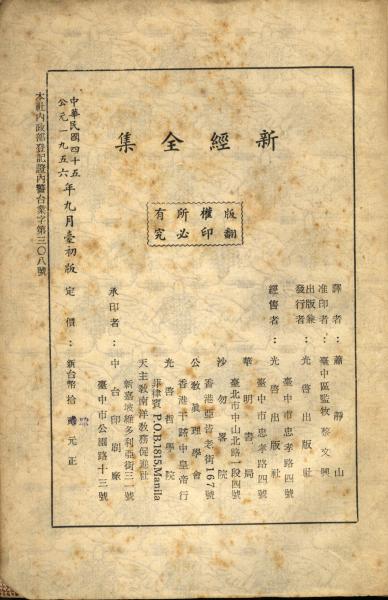 新經全集
版權所有
翻印必究
譯者：蕭靜山
准印者：臺中區監牧蔡文興
出版兼
發行者：光啓出版社
臺中市忠孝路四號
經售者：光啓出版社
臺中市忠孝路四號
華明書局
臺北市中山北路一段四號
沙勿畧院
香港亞皆老街167號
公教眞理學會
香港干諾中皇帝行
光啓哲學院
菲律賓 P.O.B.1815,Manila
天主教南洋教務促進社
新嘉坡維多利亞街三一號
承印者：中台印刷廠
臺中市公園路十三號
定價：新台幣拾貳元正
中華民國四十五
公元一九五六年九月臺初版
本社內政部登記證內警台業字第三〇八號